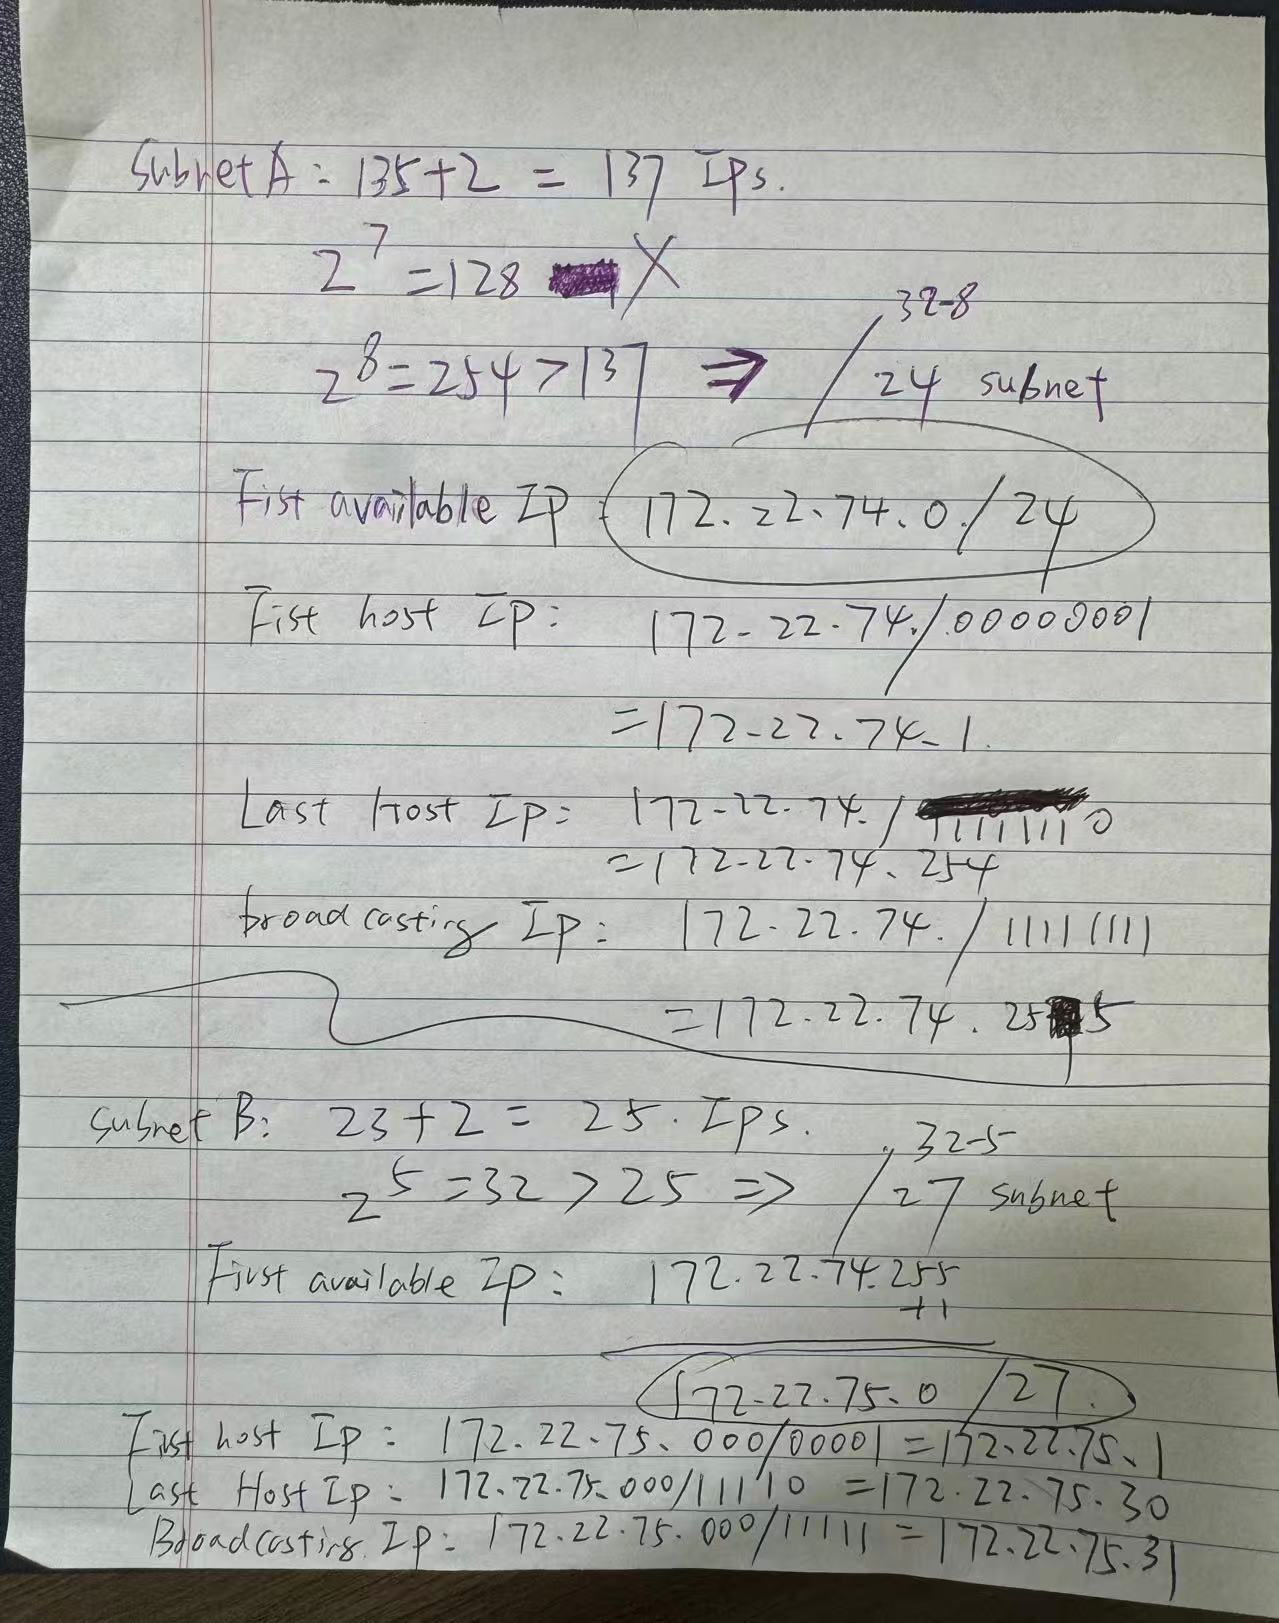 Subnet A: 135+2 = 137 Ips.
2^7 = 128 X
32-8
2^8 = 254 > 137 ⇒ /24 subnet
Fist available IP: 172.22.74.0./24
Fist host Ip: 172-22.74./00000001
=172-22.74-1.
Last Host Ip: 172-22.74./11111110
=172-22.74.254
broadcasting Ip: 172.22.74./11111111
=172.22.74.255
Subnet B: 23+2 = 25. Ips.
32-5
2^5 = 32 > 25 => /27 subnet
First available Ip: 172.22.74.255
+1
172-22.75.0 /27.
First host Ip: 172.22.75.000/00001 = 172.22.75.1
Last Host Ip: 172.22.75.000/11110 = 172.22.75.30
Broadcasting Ip: 172.22.75.000/11111 = 172.22.75.31